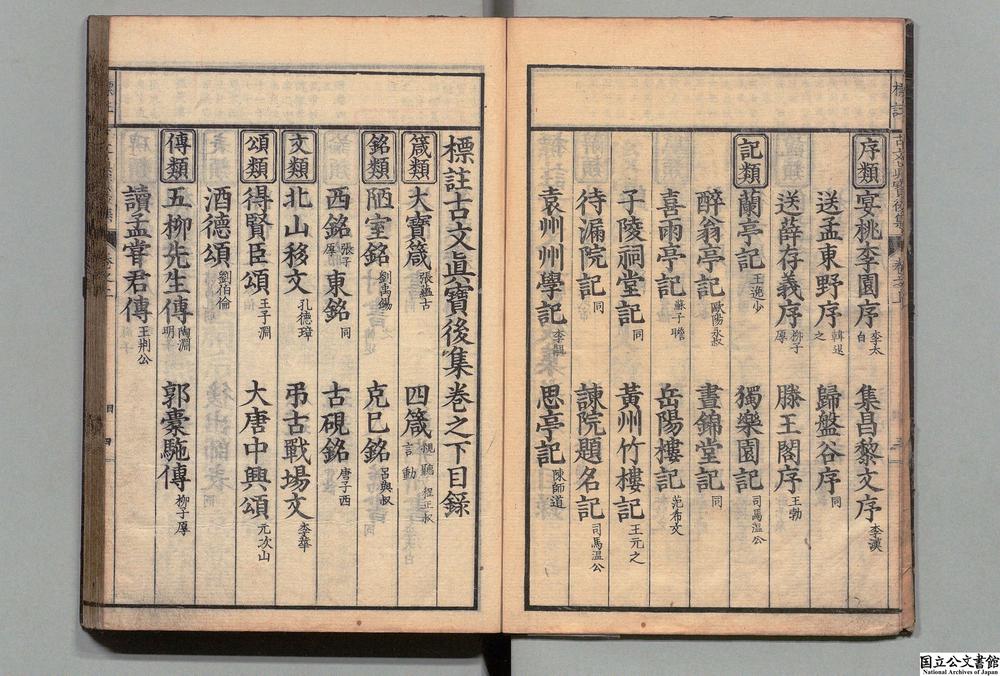 序類 宴桃李園序 李太白 集昌黎文序 李漢
送孟東野序 韓退之 歸盤谷序 同
送薛存義序 柳子厚 滕王閣序 王勃
記類 蘭亭記 王逸少 獨樂園記 司馬溫公
醉翁亭記 歐陽永叔 晝錦堂記 同
喜雨亭記 蘇子瞻 岳陽樓記 范希文
子陵祠堂記 同 黃州竹樓記 王元之
待漏院記 同 諫院題名記 司馬溫公
袁州州學記 李覯 思亭記 陳師道
標註古文眞寶後集卷之下目錄
箴類 大寶箴 張蘊古 四箴 視聽言動 程正叔
銘類 陋室銘 劉禹錫 克己銘 呂與叔
西銘 張子厚 東銘 同 古硯銘 唐子西
文類 北山移文 孔德璋 弔古戰場文 李華
頌類 得賢臣頌 王子淵 大唐中興頌 元次山
酒德頌 劉伯倫
傳類 五柳先生傳 陶淵明 郭橐駞傳 柳子厚
讀孟嘗君傳 王荆公
国立公文書館
National Archives of Japan